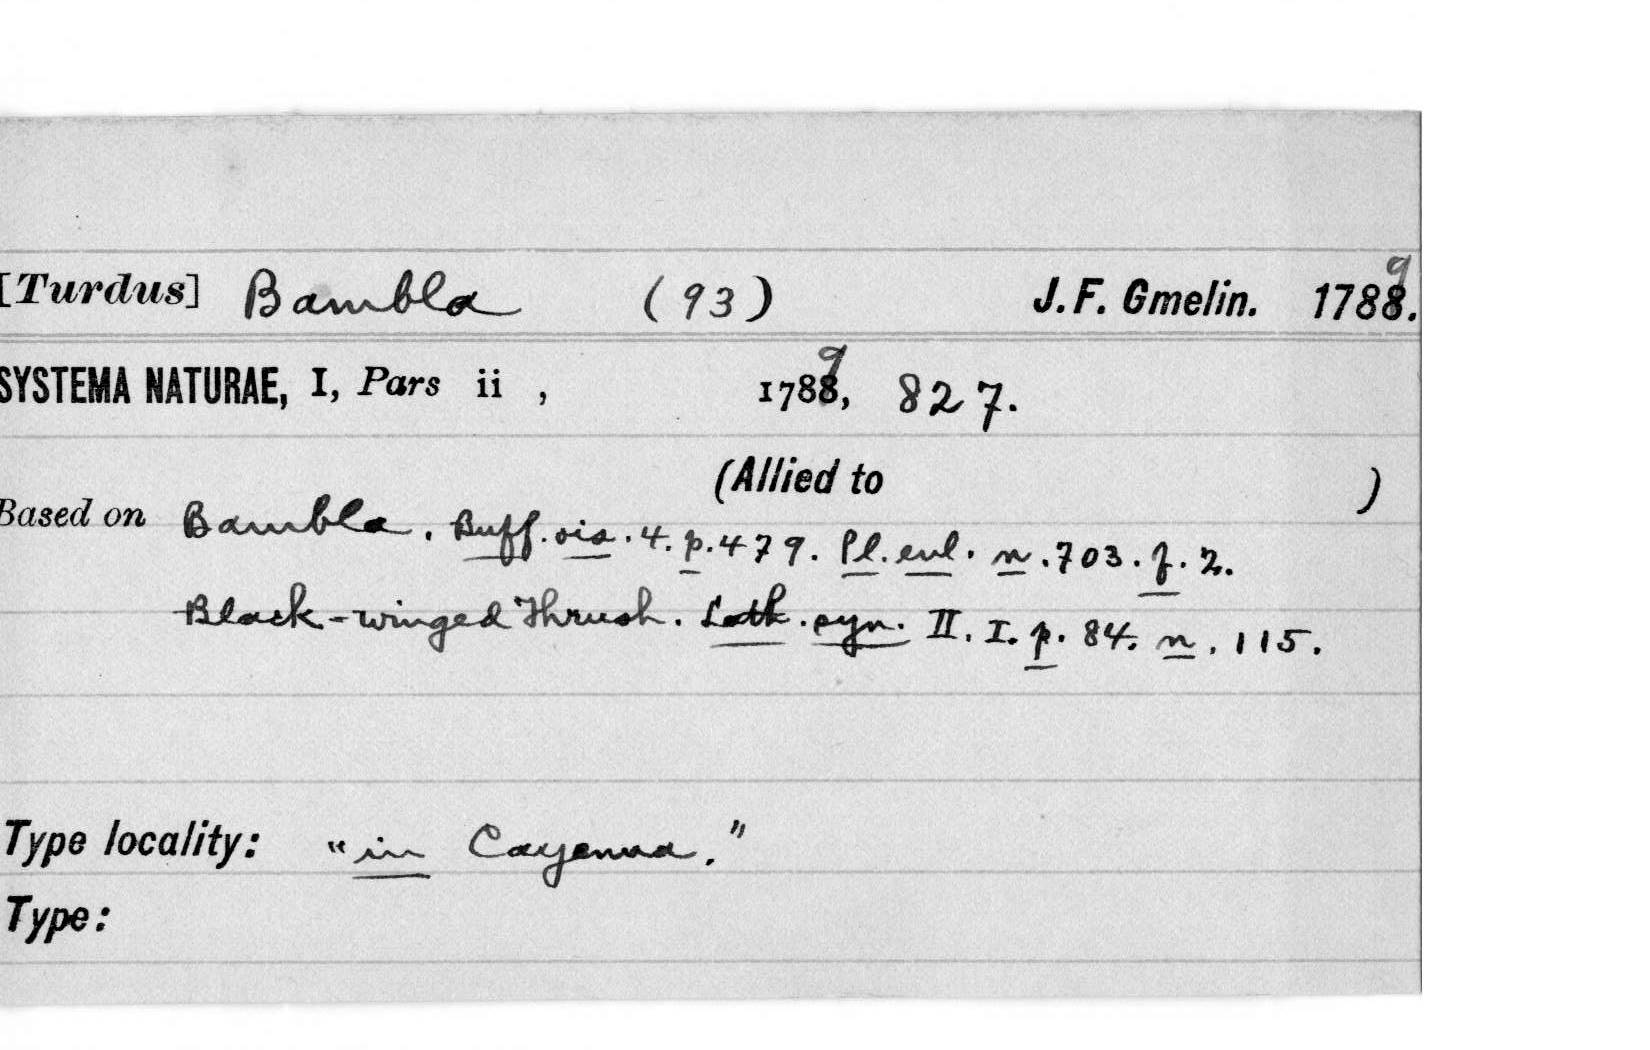 [Turdus] Bambla (93) J. F. Gmelin. 1789.
SYSTEMA NATURAE, I, Pars ii , 1789, 827.
(Allied to )
Based on Bambla. Buff. ois. 4. p. 479. Pl. enl. n. 703. f. 2.
Black-winged Thrush. Lath. syn. II. I. p. 84. n. 115.
Type locality: "in Cayenna."
Type: